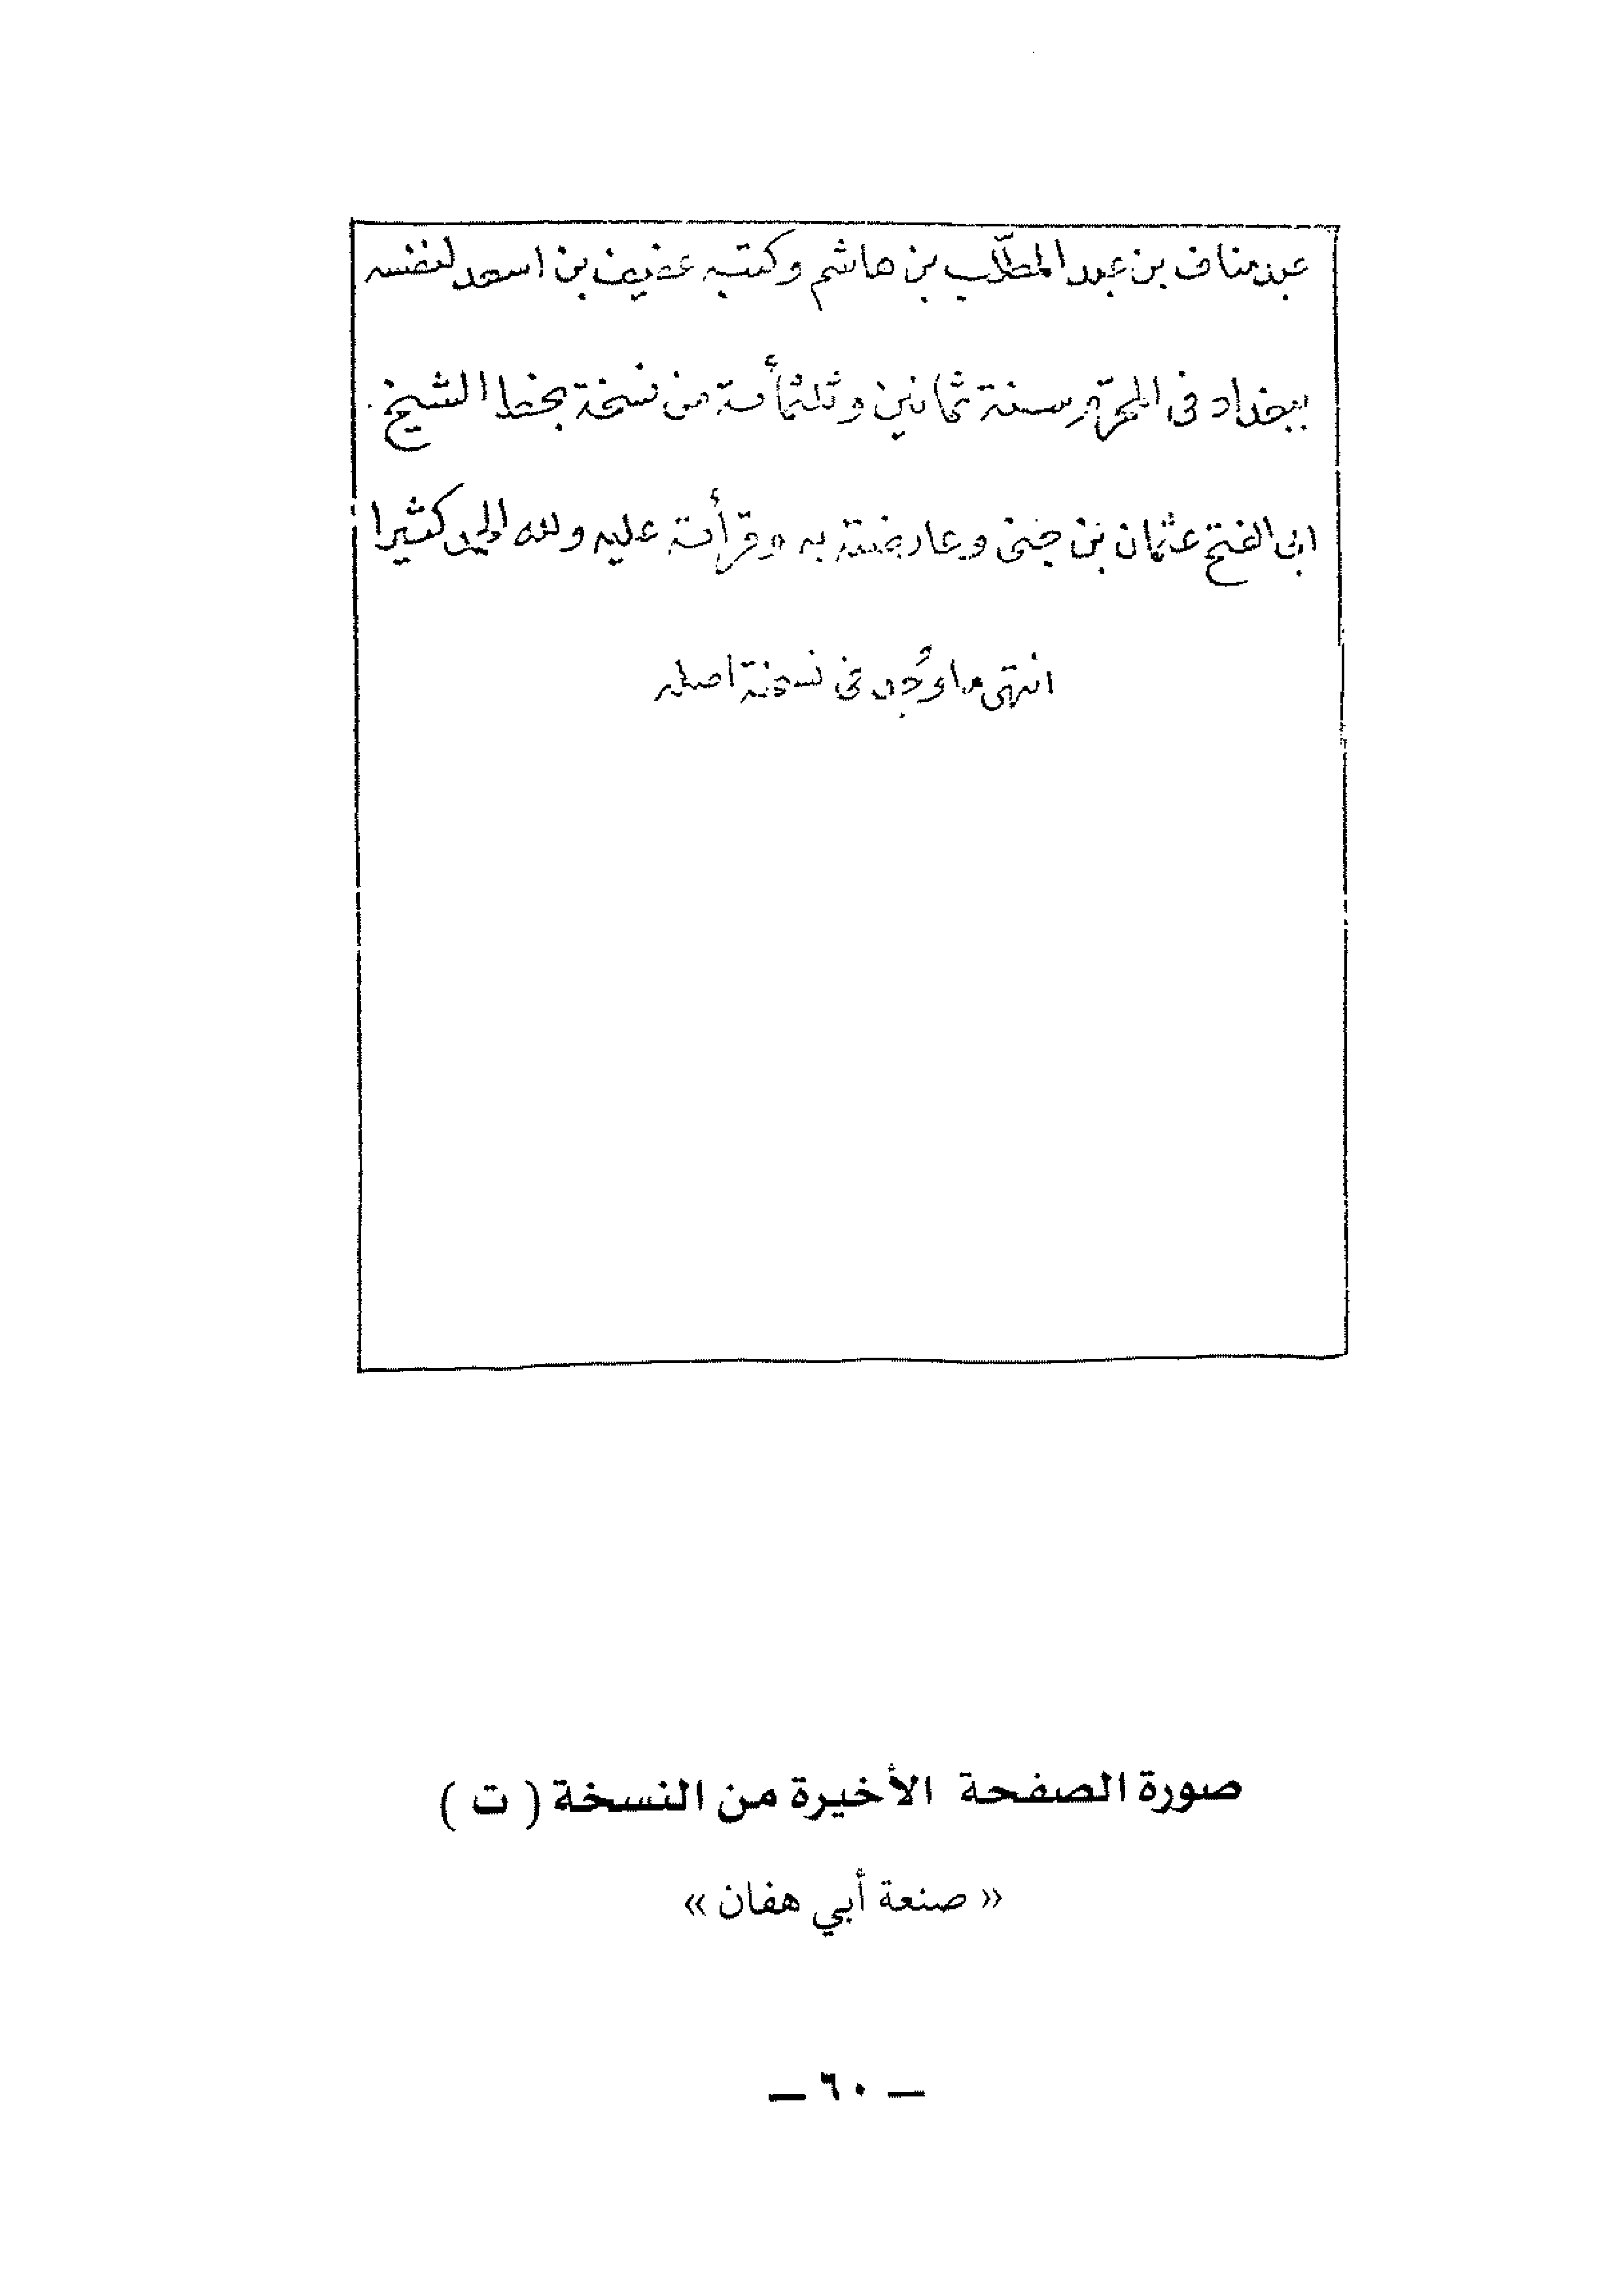 عبد مناف بن عبد المطّلب بن هاشم وكتبه عفيف بن اسعد لنفسه
ببغداد فى المحرّم سنة ثمانين وثلثمأة من نسخة بخط الشيخ
ابى الفتح عثمان بن جنى وعارضته به وقرأته عليه ولله الحمد كثيرا
انتهى ما وُجد فى نسخة اصله
صورة الصفحة الأخيرة من النسخة ( ت )
« صنعة أبي هفان »
— ٦٠ —